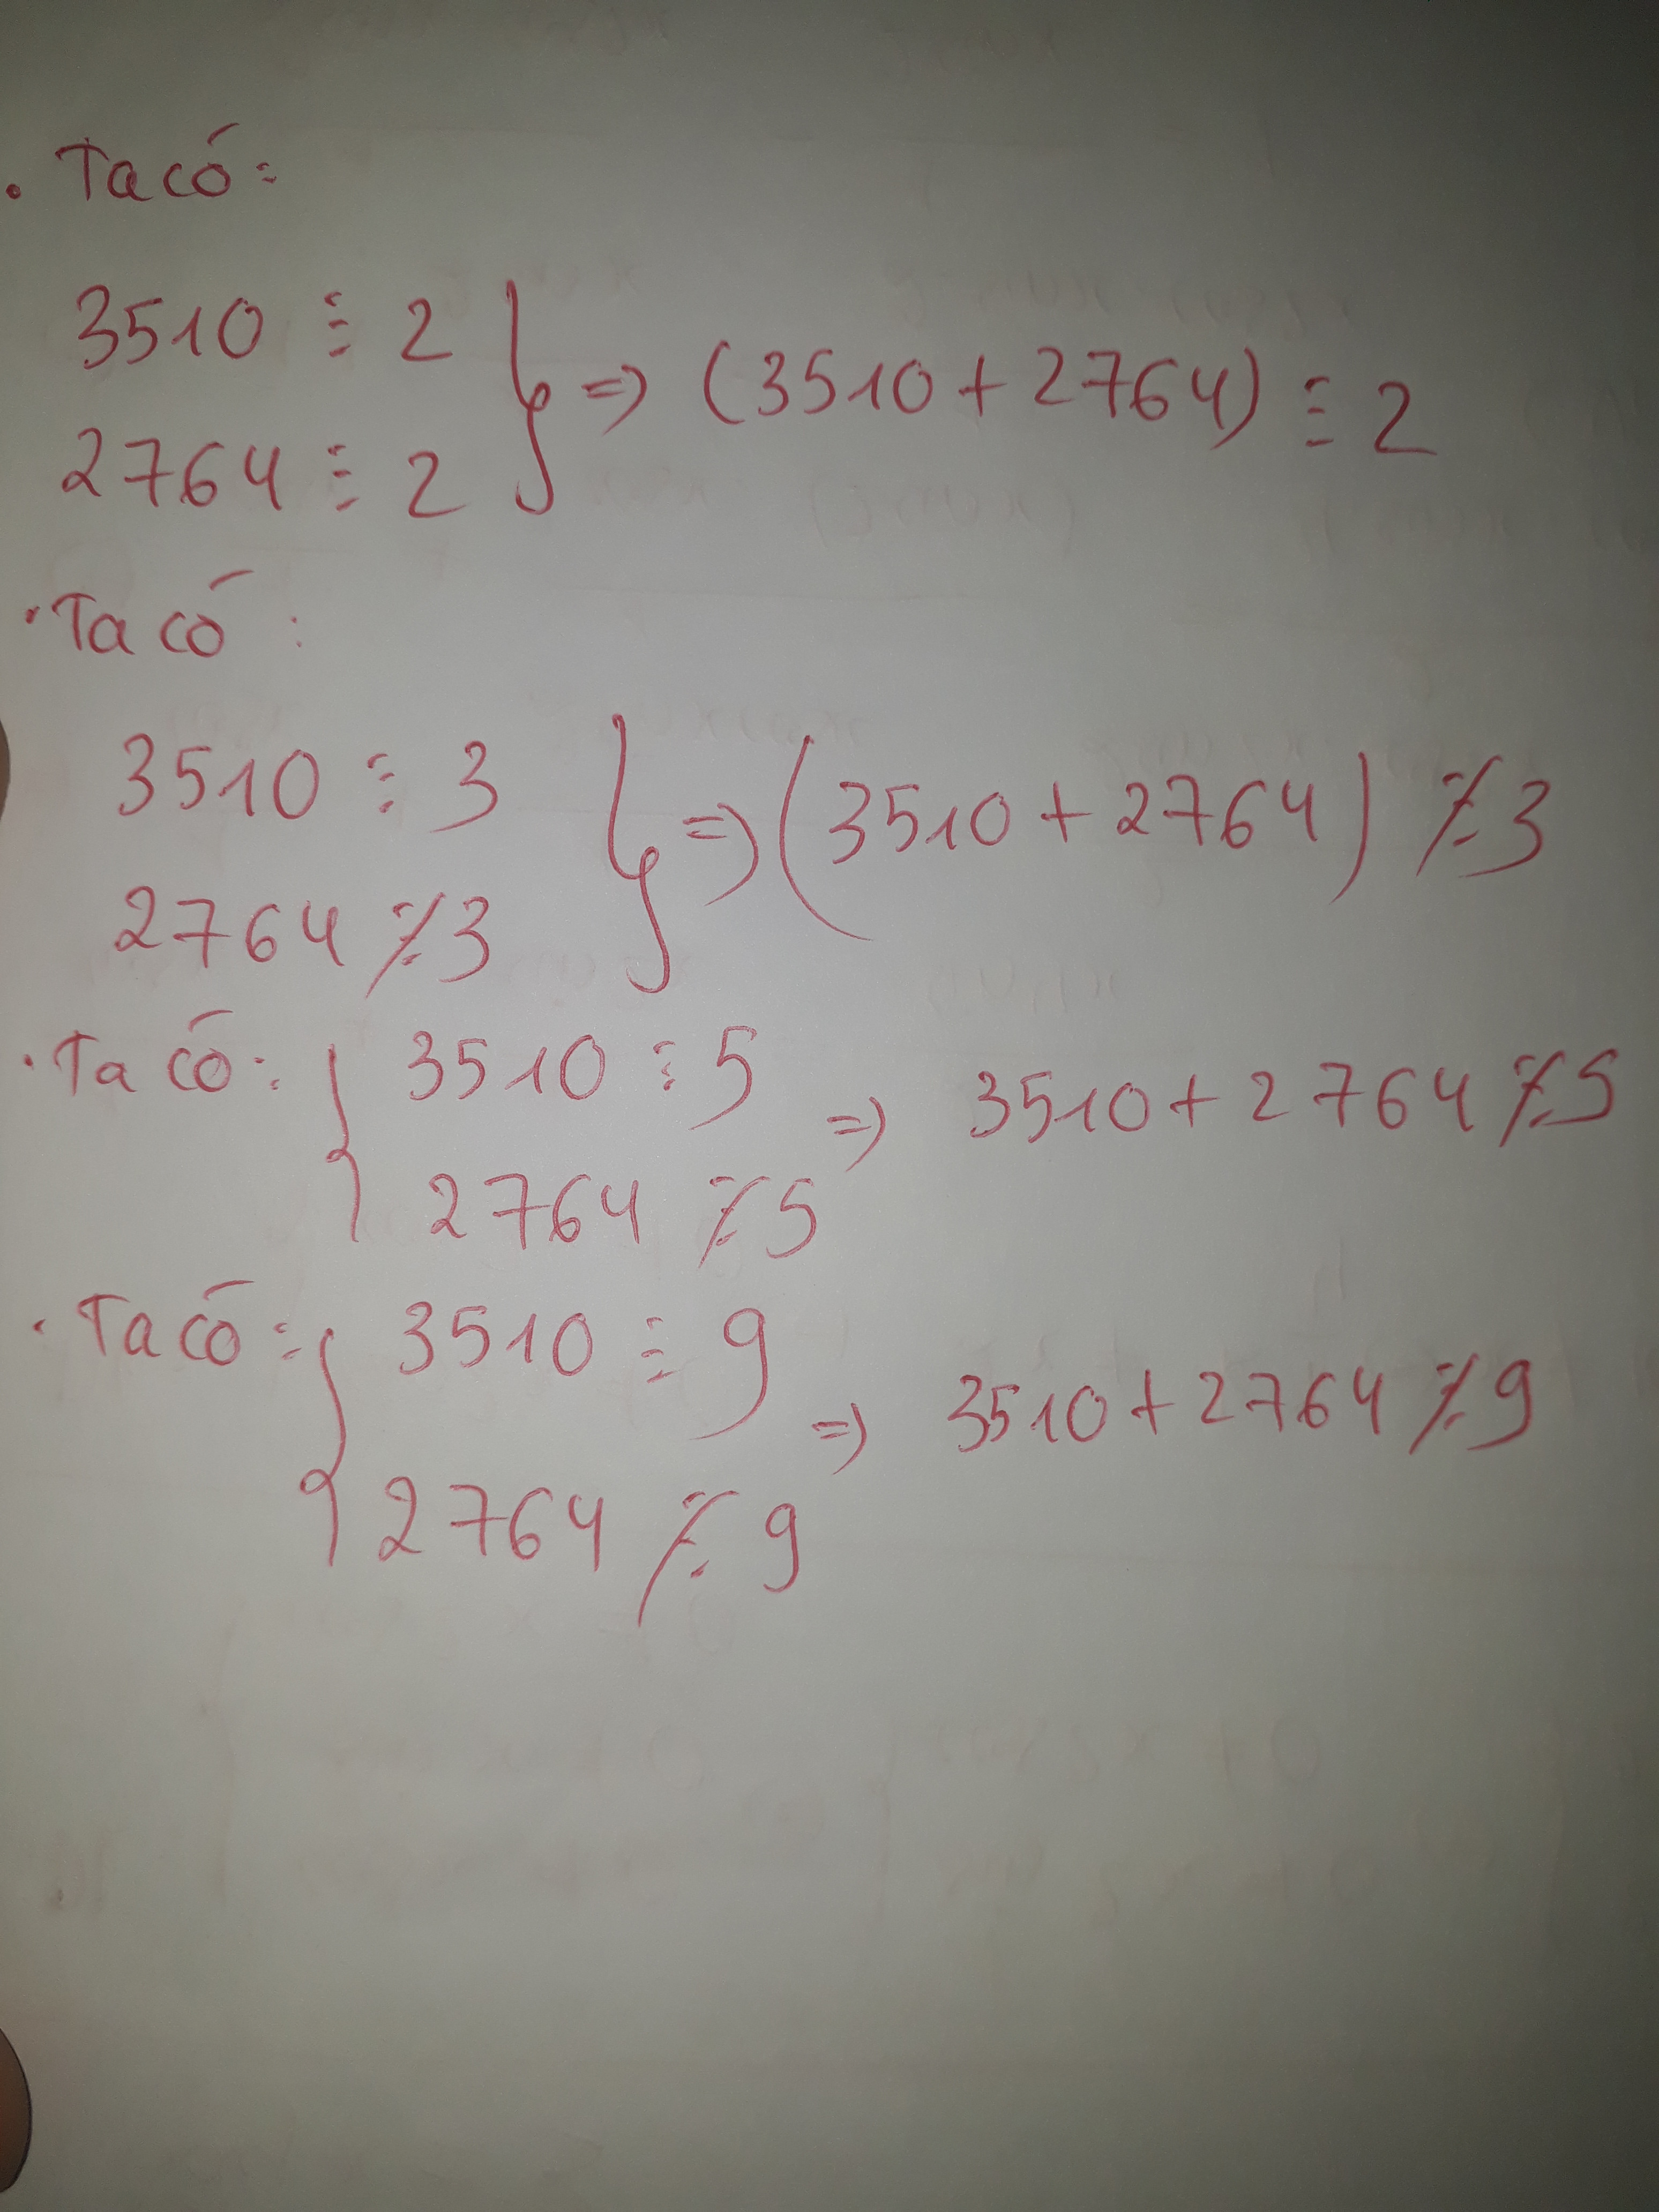 . Ta có:
3510 ⋮ 2
2764 ⋮ 2 } => (3510 + 2764) ⋮ 2
. Ta có :
3510 ⋮ 3
2764 ⋮̸ 3 } => (3510 + 2764) ⋮̸ 3
. Ta có : { 3510 ⋮ 5
2764 ⋮̸ 5 => 3510 + 2764 ⋮̸ 5
. Ta có : { 3510 ⋮ 9
2764 ⋮̸ 9 => 3510 + 2764 ⋮̸ 9